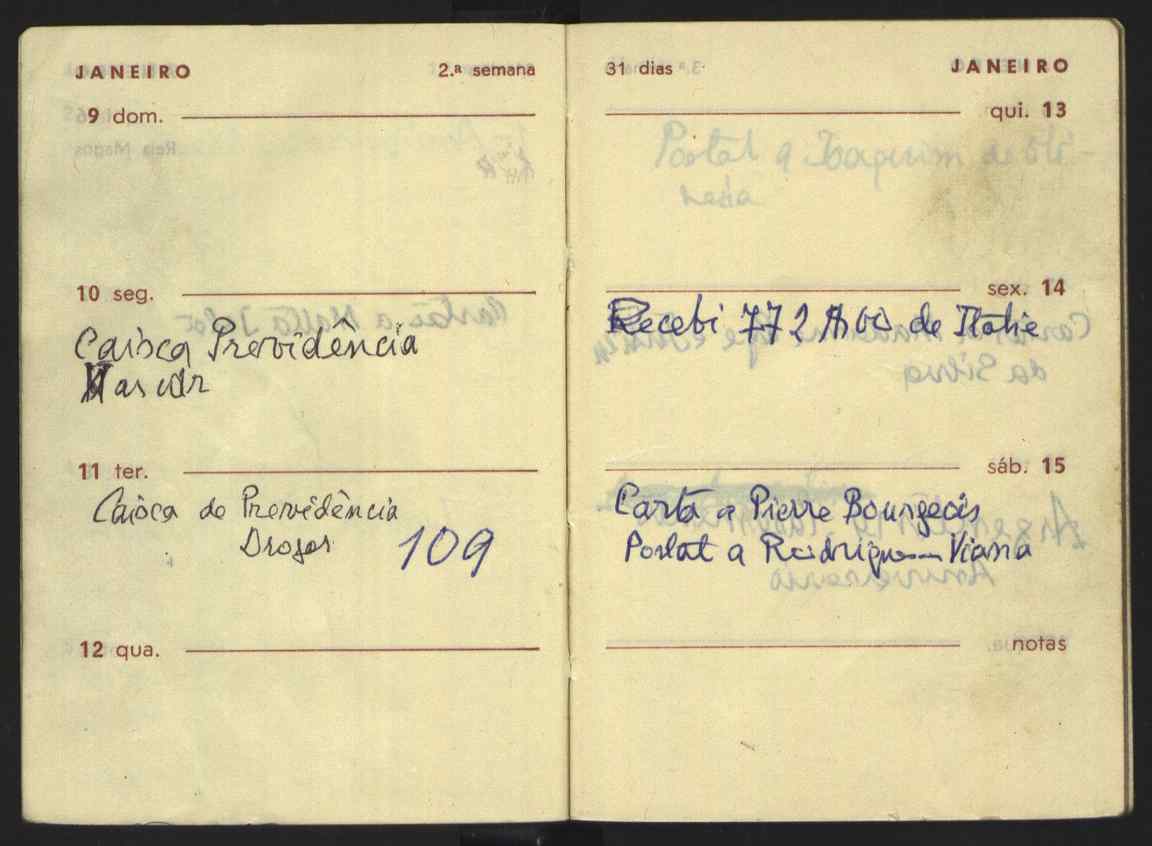 JANEIRO 2.ª semana
9 dom.
10 seg.
Caisca Previdência
11 ter.
Caisca de Previdência
Drogas 109
12 qua.
31 dias JANEIRO
qui. 13
Postal a Joaquim de
sex. 14
Recebi 772 de Italie
sáb. 15
Carta a Pierre Bourgeois
Postal a Rodrigues Viana
notas